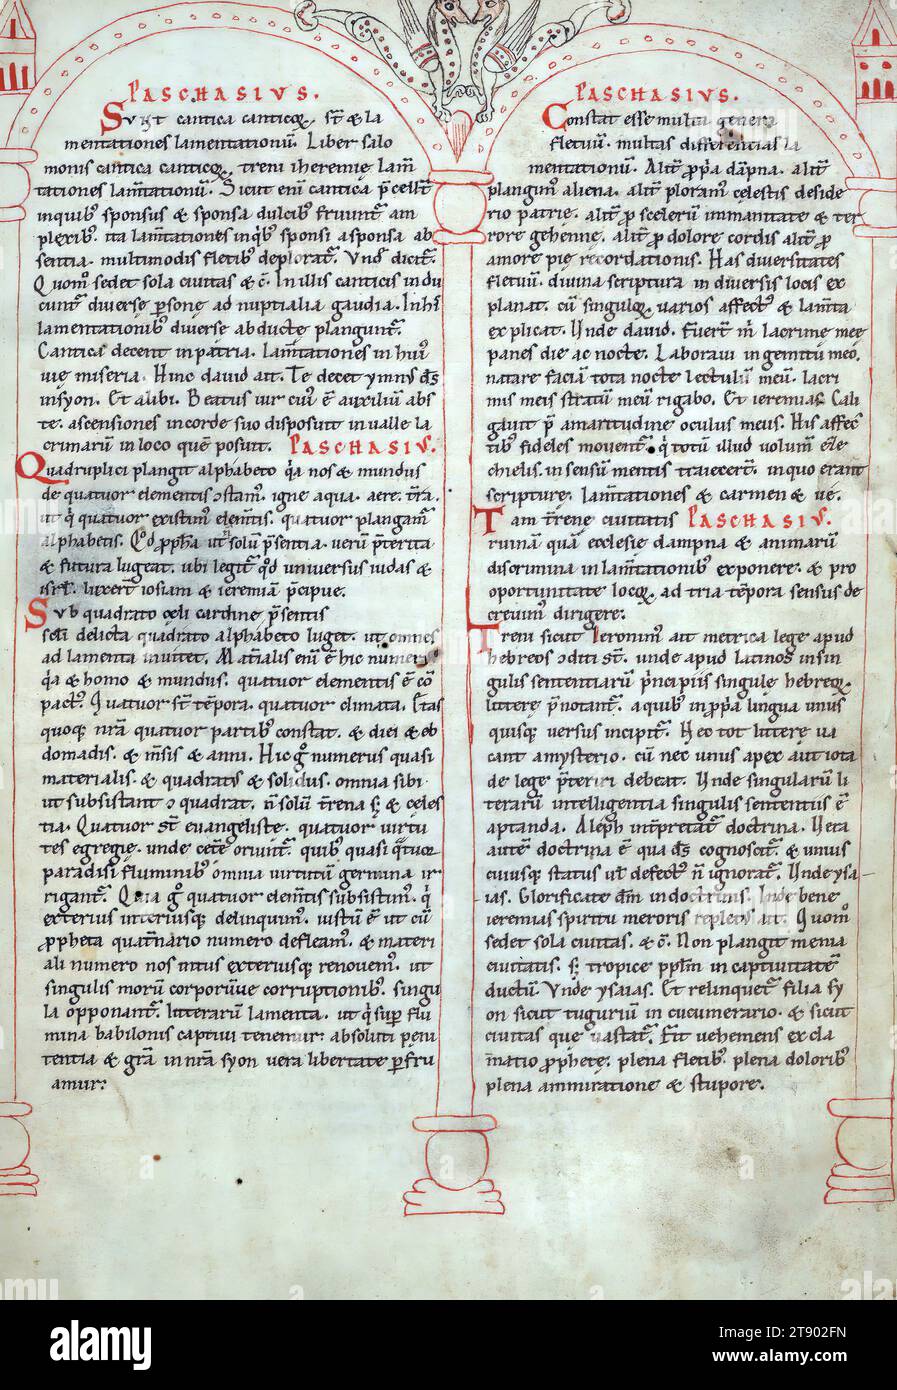 PASCHASIVS.
Sunt cantica canticoꝝ. st̄ & la
mentationes lamentationū. Liber salo
monis cantica canticoꝝ, treni iheremie lam̄
tationes lam̄tationū. Sicut eni cantica p̄cell̄t
inquib; sponsus & sponsa dulcib; fruunt̄ am
plexib;. ita lam̄tationes inq̇b; sponsi asponsa ab
sentia. multimodis fletib; deplorat̄. Vnd̄ dicit̄.
Quom̊ sedet sola ciuitas & c̄. In illis canticis indu
cunt̄ diuerse p̄sone ad nuptialia gaudia. In his
lamentationib; diuerse abducte plangunt̄.
Cantica decent in patria. lam̄tationes in hui᷒
uie miseria. Hinc dauid ait. Te decet ymnus d̄s
insyon. Et alibi. Beatus uir cui᷒ ē auxiliū abs
te. ascensiones in corde suo disposuit in ualle la
crimarū in loco quē posuit. PASCHASIV.
Quadruplici plangit alphabeto q̇a nos & mundus
de quatuor elementis ɔstam᷒. igne aqua. aere. t̄ra.
ut q̇ quatuor existim᷒ elem̄tis. quatuor plangam᷒
alphabetis. Qd̄ pph̄a ut n̄ solū p̄sentia. uerū p̄terita
& futura lugeat. ubi legit̄ qd̄ uniuersus iudas &
isrł. luxer̄t iosiam & ieremiā p̄cipue.
Sub quadrato celi cardine p̄sentis
scłi delicta quadrato alphabeto luget. ut omnes
ad lamenta inuitet. Mat̄ialis eni ē hic numer᷒
q̇a & homo & mundus. quatuor elementis ē cō
pact᷒. Quatuor st̄ tēpora. quatuor climata. Ętas
quoq; nr̄a quatuor partib; constat. & diei & eb
domadis. & m̄sis & anni. Hic g̊ numerus quasi
materialis. & quadratus & solidus. omnia sibi
ut subsistant ɔquadrat. n̄ solū t̄rena sꝫ & celes
tia. Quatuor st̄ euangeliste. quatuor uirtu
tes egregię. unde cet̄e oriunt̄. quib; quasi q̇tuor
paradisi fluminib; omnia uirtutū germina ir
rigant̄. Quia g̊ quatuor elem̄tis subsistim᷒. q̇
exterius interiusq; delinquim᷒. iustū ē ut cū
ppheta quat̄nario numero defleam᷒. & materi
ali numero nos intus exteriusq; renouem᷒. ut
singulis morū corporūue corruptionib;. singu
la opponant̄. litterarū lamenta. ut q̇ sup̄ flu
mina babilonis captiui tenemur. absoluti peni
tentia & gr̄a in nr̄a syon uera libertate p̄fru
amur.
PASCHASIVS.
Constat esse multa genera
fletuū. multas differentias la
mentationū. Alit̄ pp̄a dāpna. alit̄
plangim᷒ aliena. alit̄ ploram᷒ celestis deside
rio patrie. alit̄ p scelerū immanitate & ter
rore gehenne. alit̄ p dolore cordis alit̄ p
amore pię recordationis. Has diuersitates
fletuū. diuina scriptura in diuersis locis ex
planat. cū singuloꝝ uarios affect᷒ & lam̄ta
explicat. Vnde dauid. fuer̄t m̄ lacrime mee
panes die ac nocte. Laboraui in gemitu meo.
natare faciā tota nocte lectulū meū. lacri
mis meis stratū meū rigabo. Et ieremias Cali
gauit p̄ amaritudine oculus meus. His affec
tib; fideles mouent̄. q̇ totū illud uolum̄ eze
chielis. in sensū mentis traiecer̄t. in quo erant
scripture. lam̄tationes & carmen & ue.
Tam t̄rene ciuitatis PASCHASIV.
ruinā quā ecclesie dampna & animarū
discrimina in lam̄tationib; exponere. & pro
oportunitate locoꝝ. ad tria tēpora sensus de
creuim᷒ dirigere.
Treni sicut Ieronim᷒ ait metrica lege apud
hebreos ɔditi st̄. unde apud latinos insin
gulis sententiarū p̄ncipiis singule hebreoꝝ
littere p̄notant̄. aquib; in pp̄a lingua unus
quisq; uersus incipit̄. Hec tot littere ua
cant a mysterio. cū nec unus apex aut iota
de lege p̄teriri debeat. Vnde singularū li
terarū intelligentia singulis sententiis ē
aptanda. Aleph int̄pretat̄ doctrina. Vera
autē doctrina ē qua d̄s cognoscit̄. & unius
cuiusq; status ut defect᷒ n̄ ignorat̄. Vnde ysa
ias. Glorificate dm̄ in doctrinis. Inde bene
ieremias spiritu meroris repletus ait. Quom̊
sedet sola ciuitas. & c̄. Non plangit menia
ciuitatis. sꝫ tropice pplm̄ in captiuitatē
ductū. Vnde ysaias. Et relinquet̄ filia sy
on sicut tuguriū in cucumerario. & sicut
ciuitas que uastat̄. Fit uehemens excla
matio pphete. plena fletib;. plena dolorib;
plena ammiratione & stupore.
alamy
Image ID: 2T902FN
www.alamy.com